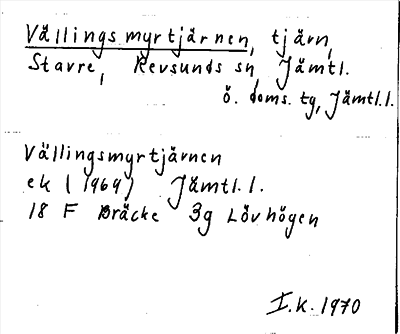 Vällingsmyrtjärnen, tjärn,
Stavre, Revsunds sn, Jämtl.
ö. doms. tg, Jämtl.l.
Vällingsmyrtjärnen
ek (1969) Jämtl.l.
18 F Bräcke 3g Lövhögen
I.K. 1970